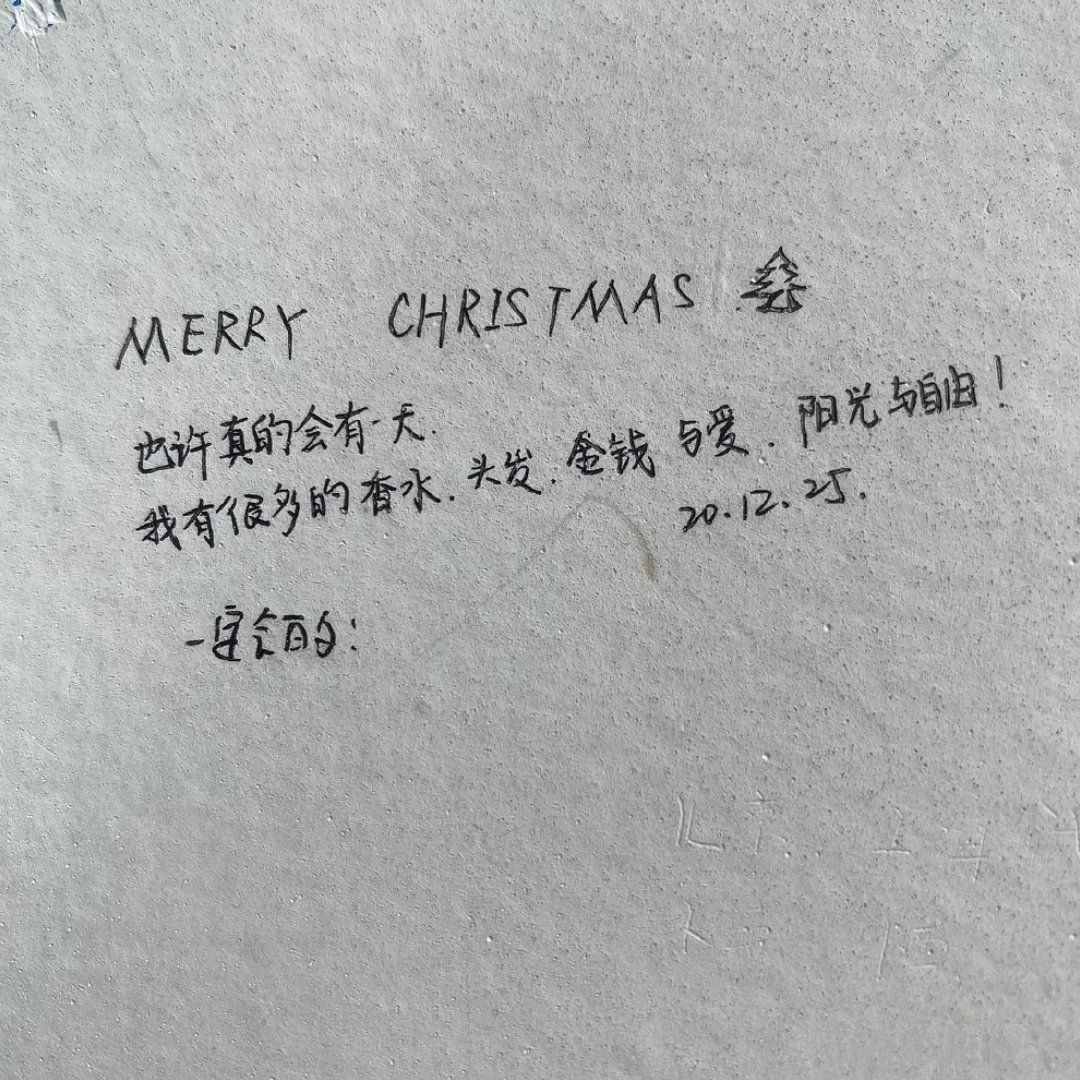 MERRY CHRISTMAS
也许真的会有一天.
我有很多的香水.头发.金钱与爱.阳光与自由!
20.12.25.
一定会有的!